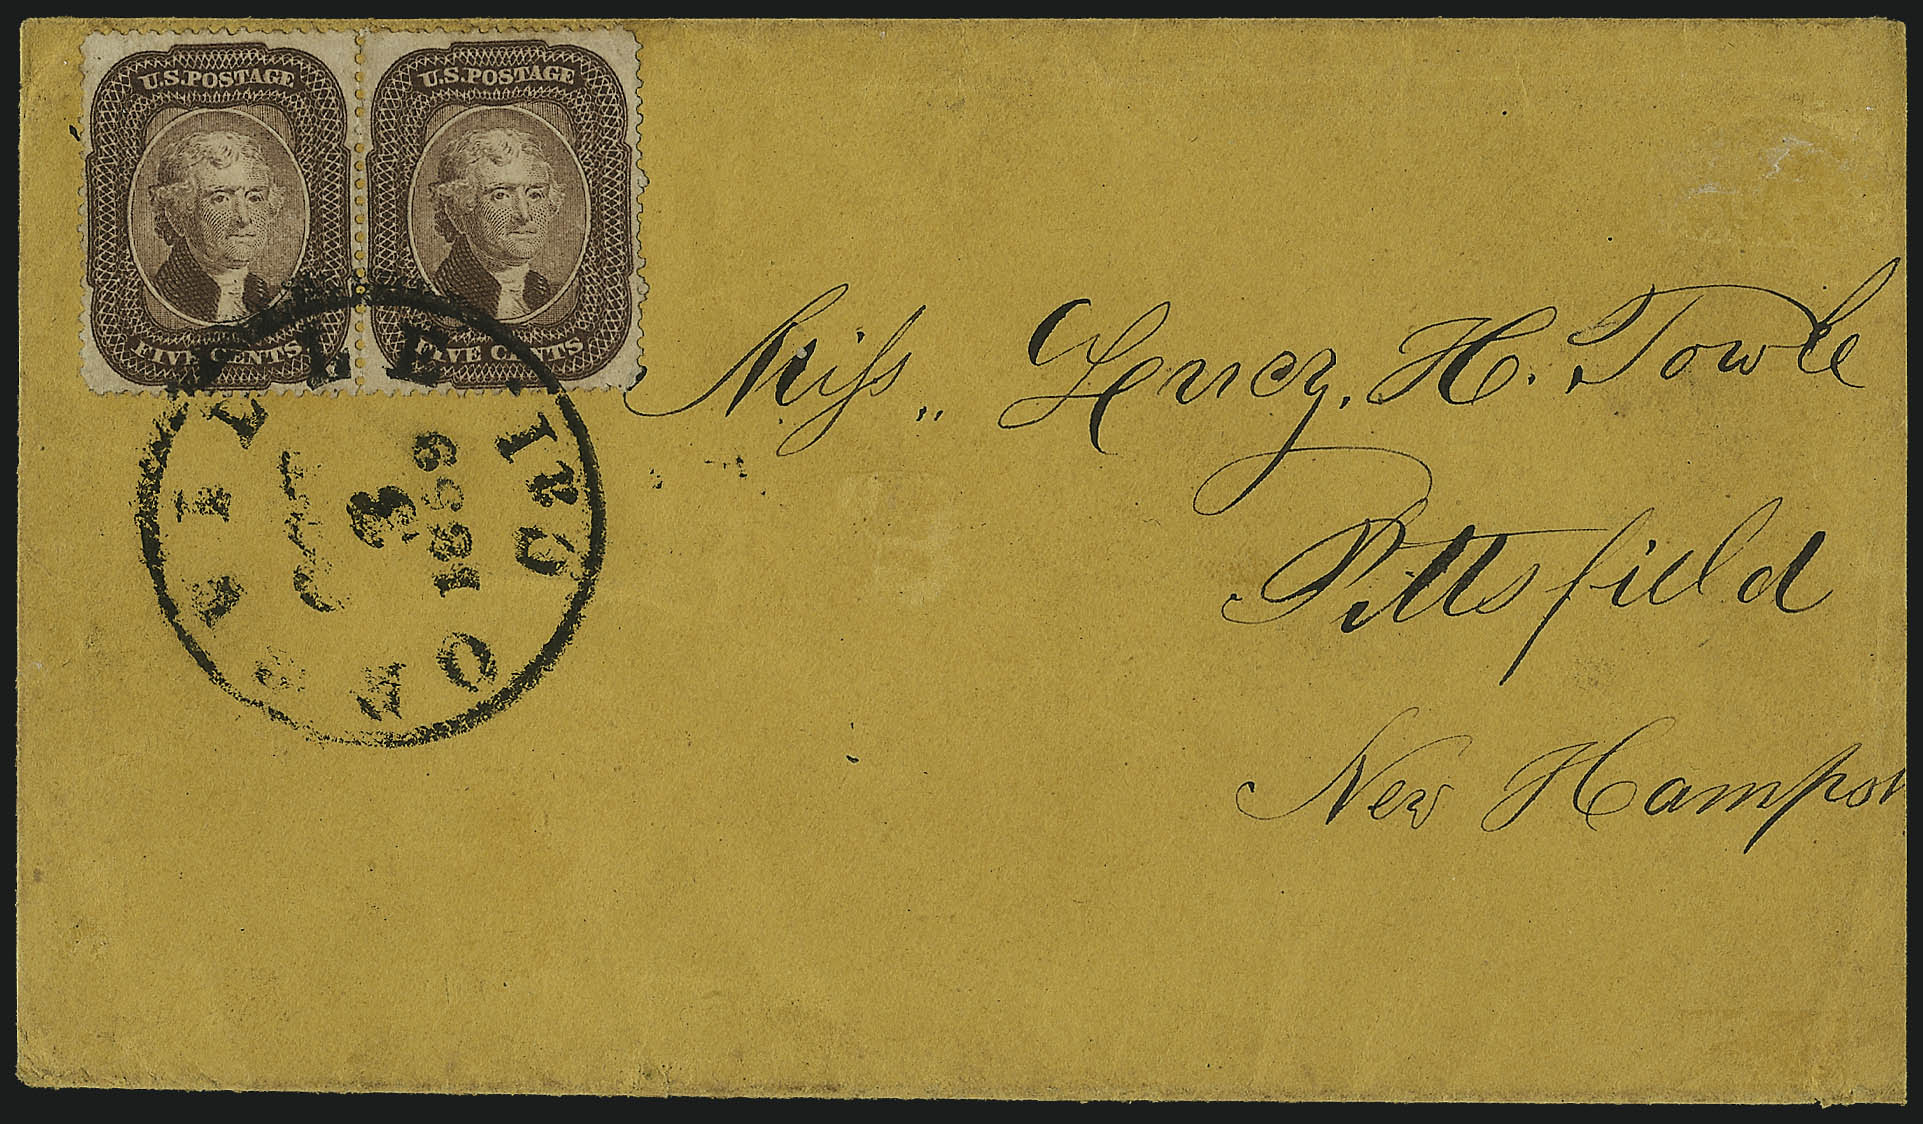 U.S. POSTAGE
FIVE CENTS
U.S. POSTAGE
FIVE CENTS
OROVILLE CAL
OCT
3
1859
Miss,, H. Towle
Pittsfield
New Hampsh